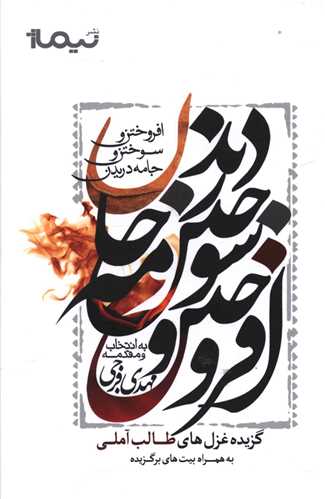 نشر
نیماژ
افروختن و
سوختن و
جامه دریدن
افروختن و سوختن و جامه دریدن
به انتخاب
و مقدمه
مهدی فرجی
گزیده غزل های طالب آملی
به همراه بیت های برگزیده